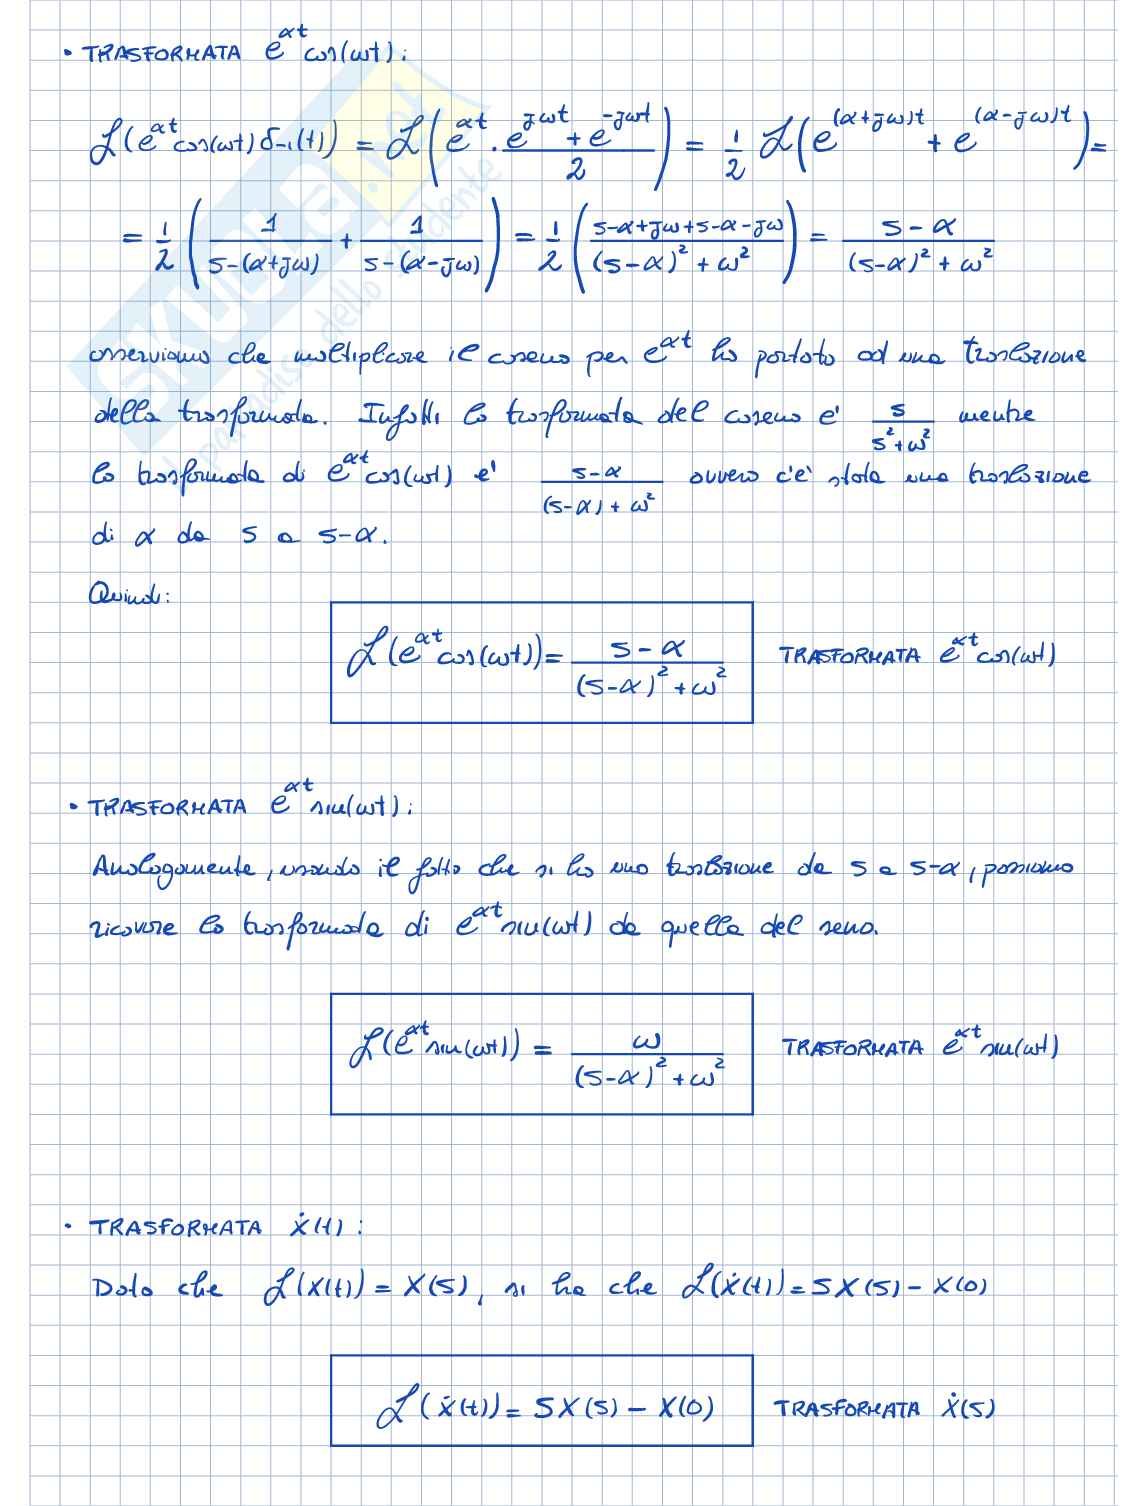 • TRASFORMATA e^{αt} cos(ωt):
ℒ(e^{αt}cos(ωt) δ₋₁(t)) = ℒ(e^{αt} · (e^{jωt} + e^{-jωt})/2) = 1/2 ℒ(e^{(α+jω)t} + e^{(α-jω)t}) =
= 1/2 (1/(s-(α+jω)) + 1/(s-(α-jω))) = 1/2 ((s-α+jω+s-α-jω)/((s-α)² + ω²)) = (s-α)/((s-α)² + ω²)
osserviamo che moltiplicare il coseno per e^{αt} ha portato ad una traslazione
della trasformata. Infatti la trasformata del coseno e' s/(s²+ω²) mentre
la trasformata di e^{αt}cos(ωt) e' (s-α)/((s-α)+ω²) ovvero c'e' stata una traslazione
di α da s a s-α.
Quindi:
ℒ(e^{αt}cos(ωt)) = (s-α)/((s-α)²+ω²) TRASFORMATA e^{αt}cos(ωt)
• TRASFORMATA e^{αt} sin(ωt):
Analogamente, usando il fatto che si ha una traslazione da s a s-α, possiamo
ricavare la trasformata di e^{αt}sin(ωt) da quella del seno.
ℒ(e^{αt}sin(ωt)) = ω/((s-α)²+ω²) TRASFORMATA e^{αt}sin(ωt)
• TRASFORMATA ẋ(t):
Dato che ℒ(x(t)) = X(s), si ha che ℒ(ẋ(t)) = sX(s) - x(0)
ℒ(ẋ(t)) = sX(s) - x(0) TRASFORMATA ẋ(s)
SKUOLA.net
il paradiso dello studente